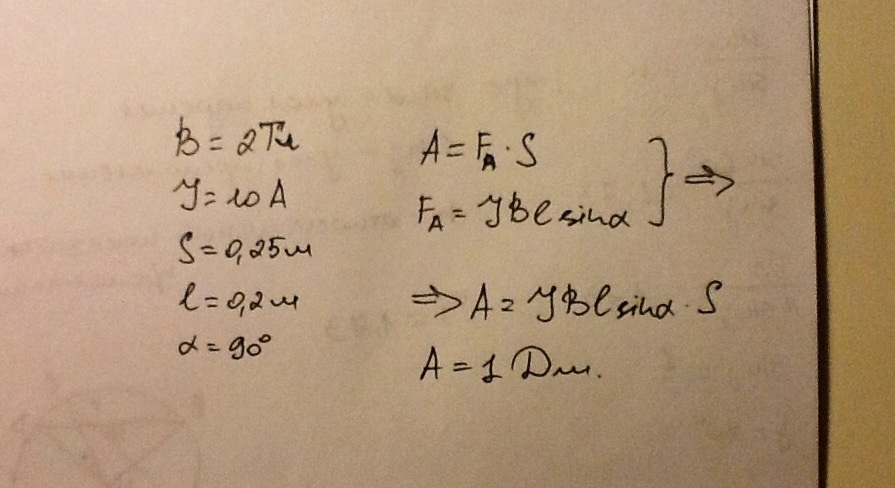 B = 2Тл
I = 10 А
S = 0,25м
l = 0,2м
α = 90°
A = F_A · S
F_A = IBl sinα } ⇒
⇒ A = IBl sinα · S
A = 1 Дж.